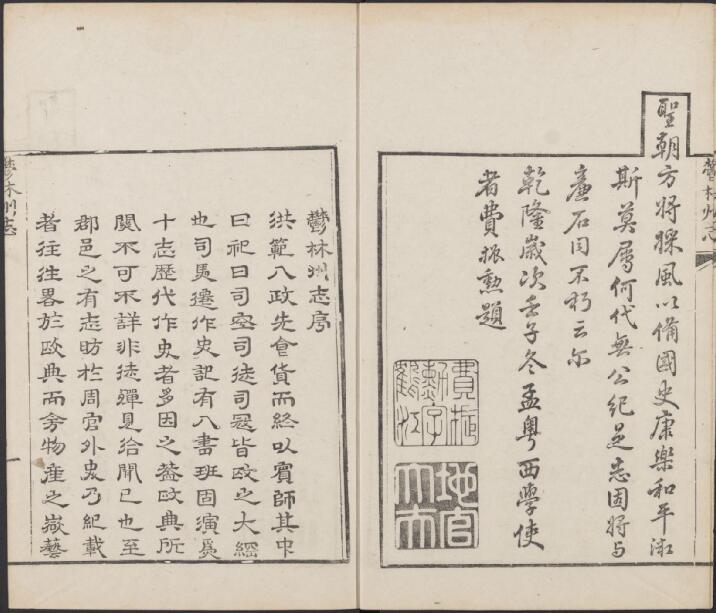 鬱林州志
聖朝方將採風以備國史康樂和平
斯莫屬何代無公紀是志固將与
廉石同不朽云尔
乾隆歲次壬子冬孟粤西學使
者費振勳題
費振
勳字
鶴江
地官
大夫
鬱林州志序
洪範八政先食貨而終以賓師其中
曰祀曰司空司徒司寇皆政之大綱
也司馬遷作史記有八書班固演爲
十志歷代作史者多因之蓋政典所
關不可不詳非徒殫見洽聞已也至
郡邑之有志昉於周官外史乃紀載
者往往畧於政典而物產之藝
鬱林州志